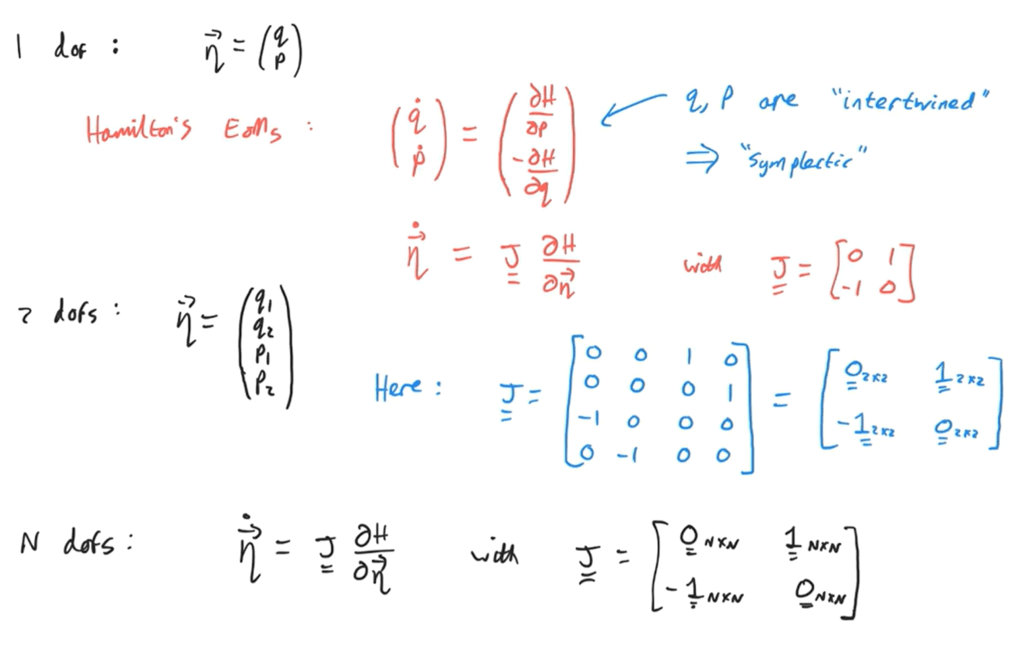 1 dof : η⃗ = (q p)
Hamilton's EoMs : (q̇ ṗ) = (∂H/∂p -∂H/∂q) q, p are "intertwined"
⇒ "symplectic"
η⃗̇ = J ∂H/∂η⃗ with J = [0 1 -1 0]
2 dofs : η⃗ = (q₁ q₂ p₁ p₂)
Here : J = [0 0 1 0 0 0 0 1 -1 0 0 0 0 -1 0 0] = [0₂ₓ₂ 1₂ₓ₂ -1₂ₓ₂ 0₂ₓ₂]
N dofs : η⃗̇ = J ∂H/∂η⃗ with J = [0 N×N 1 N×N -1 N×N 0 N×N]